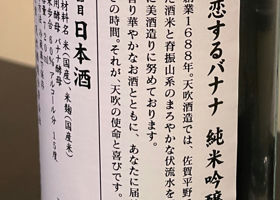 恋するバナナ 純米吟醸
創業1688年。天吹酒造では、佐賀平野
た酒米と脊振山系のまろやかな伏流水を
な美酒造りに努めております。
香り華やかなお酒とともに、あなたに届
の時間。それが、天吹の使命と喜びです。
日本酒
原材料名 米(国産) 米麹(国産米)
酵母 バナナ酵母
60% アルコール分 15度